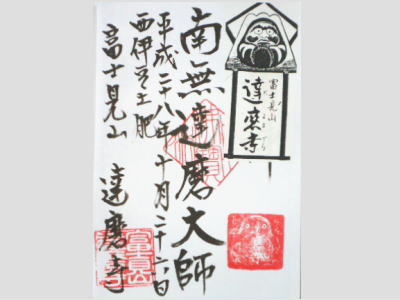 富士見山
達磨寺
南無達磨大師
平成二十八年十月二十六日
西伊豆土肥
富士見山 達磨寺